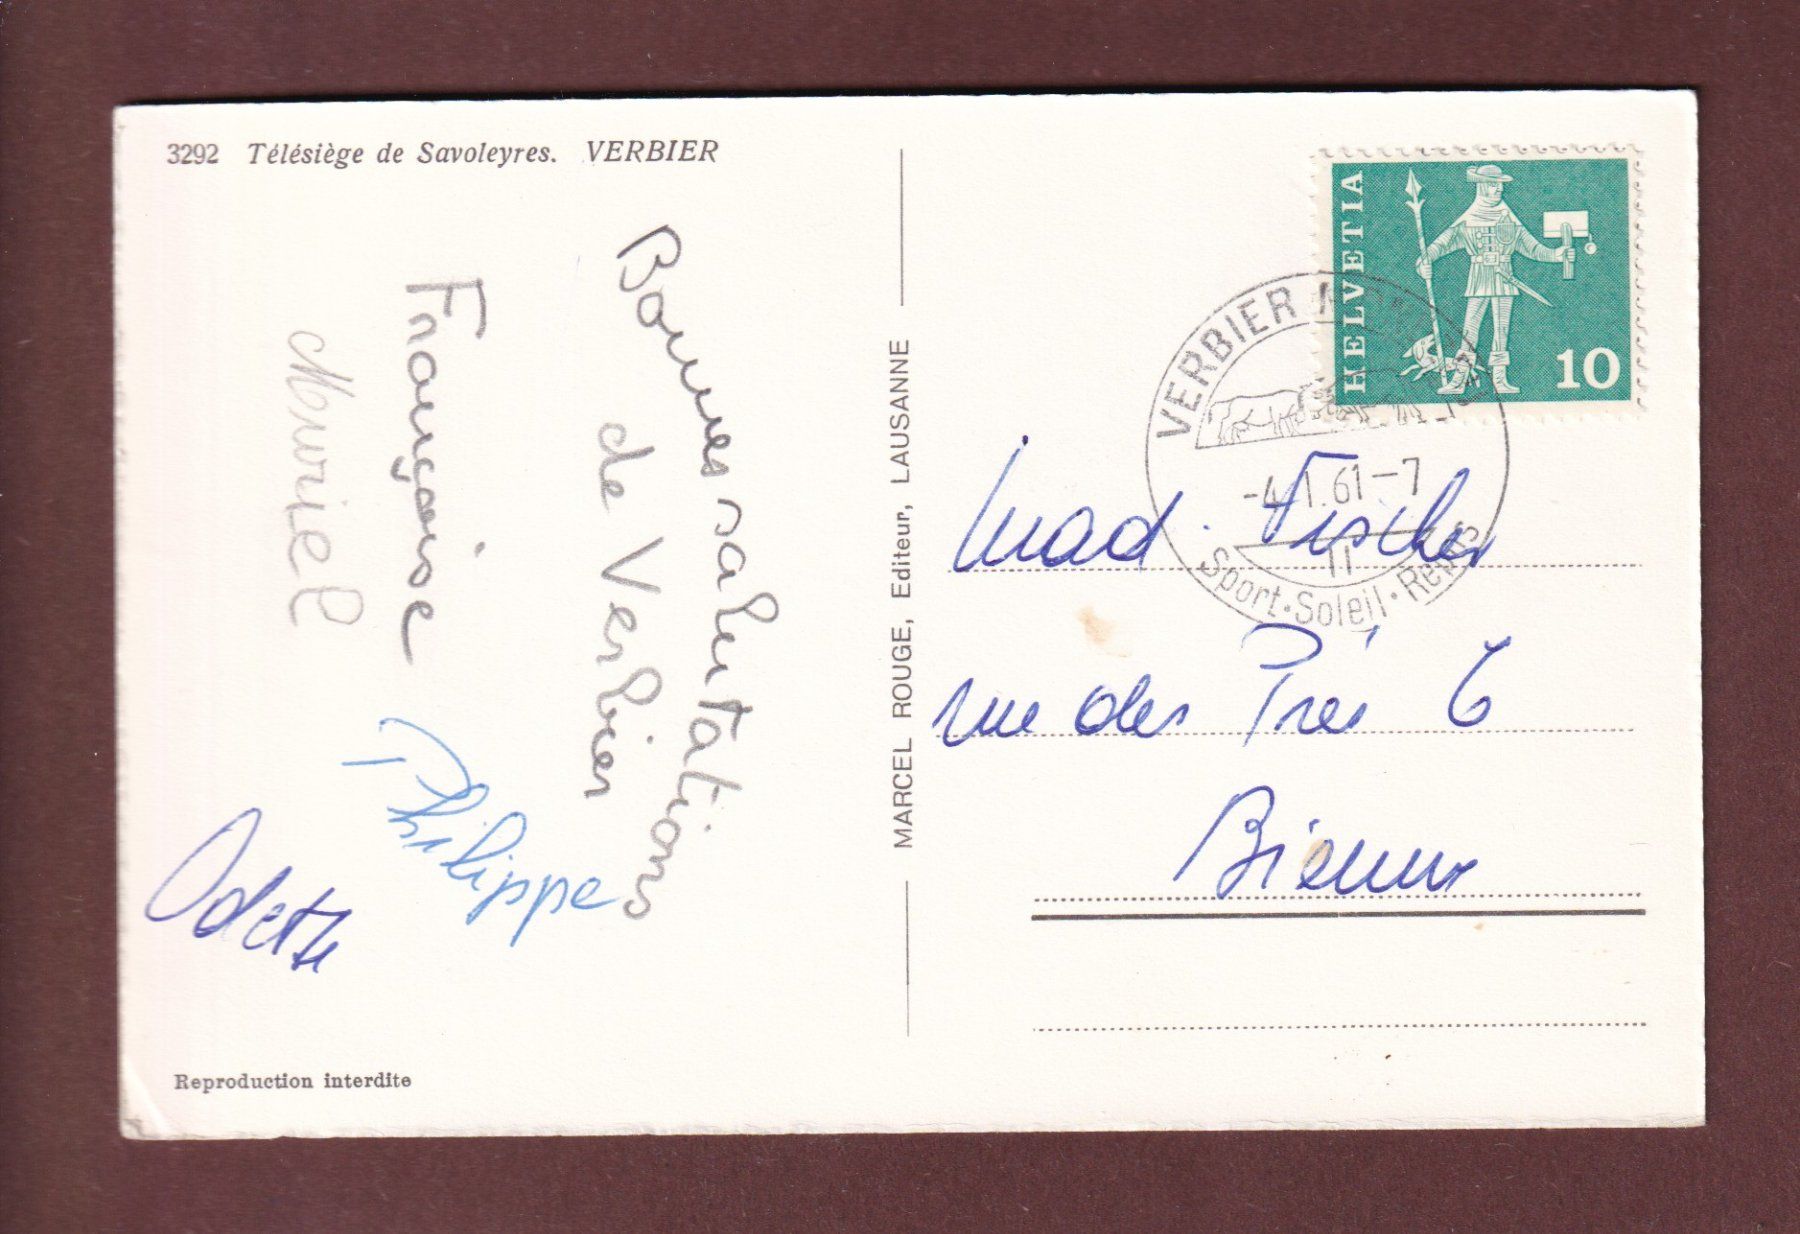 3292 Télésiège de Savoleyres. VERBIER
Bonnes salutations
de Verbier
Françoise
Muriel
Philippe
Odette
Reproduction interdite
MARCEL ROUGE, Editeur, LAUSANNE
HELVETIA
10
VERBIER
-4.1.61-7
Sport·Soleil·Repos
Mad. Fischer
rue des Prés 6
Bienne